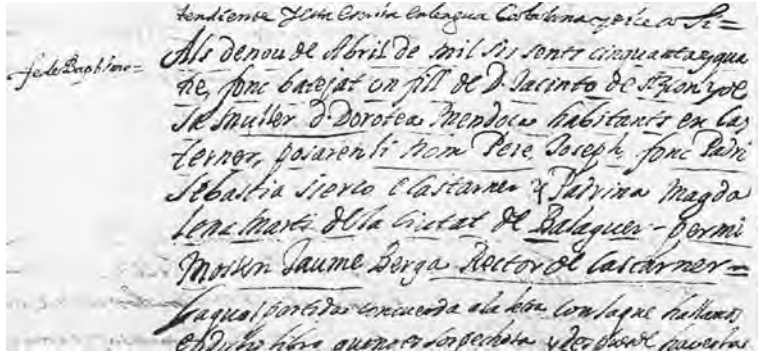 tendiente y esta Escrita en lengua Catalana y dice asi=
fe de Baptismo=
Als denou de Abril de mil sis sents cinquanta y qua
tre, fonc batejat un fill de D. Jacinto de y de
sa muller D. Dorotea Mendoca habitants en Cas
terner, posarenli nom Pere, Joseph, fonc Padri
Sebastia sierco e Castarner y Padrina Magda
lena Marti de la Ciutat de Balaguer - per mi
Mossen Jaume Berga Rector de Castarner=
laqual partida concuerda a la letra con la que hallamos
en dicho libro que no es sospechosa y